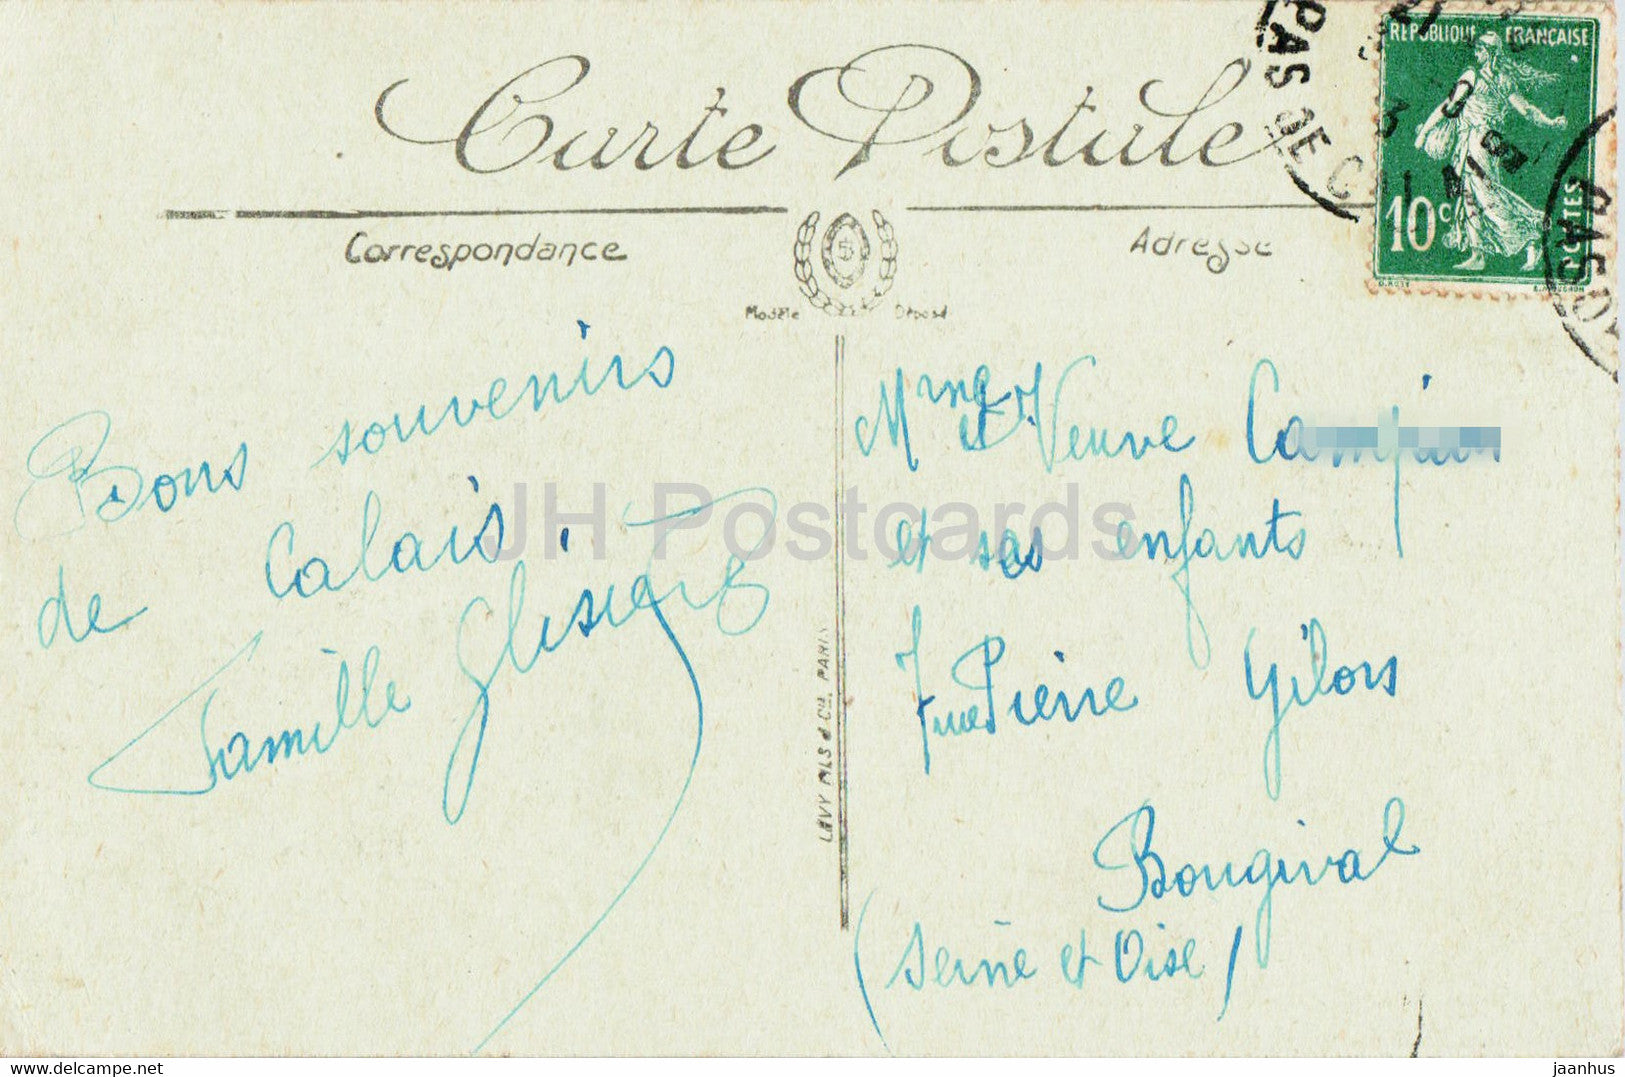 Carte Postale
Correspondance
Adresse
Modèle Déposé
RÉPUBLIQUE FRANÇAISE
10c
POSTES
PAS DE
PAS D
Bons souvenirs
de Calais.
Famille
Mme Veuve
et ses enfants
7 rue Pierre Gilors
Bougival
(Seine et Oise)
LÉVY FILS & Cie, PARIS
JH Postcards
delcampe.net
jaanhus